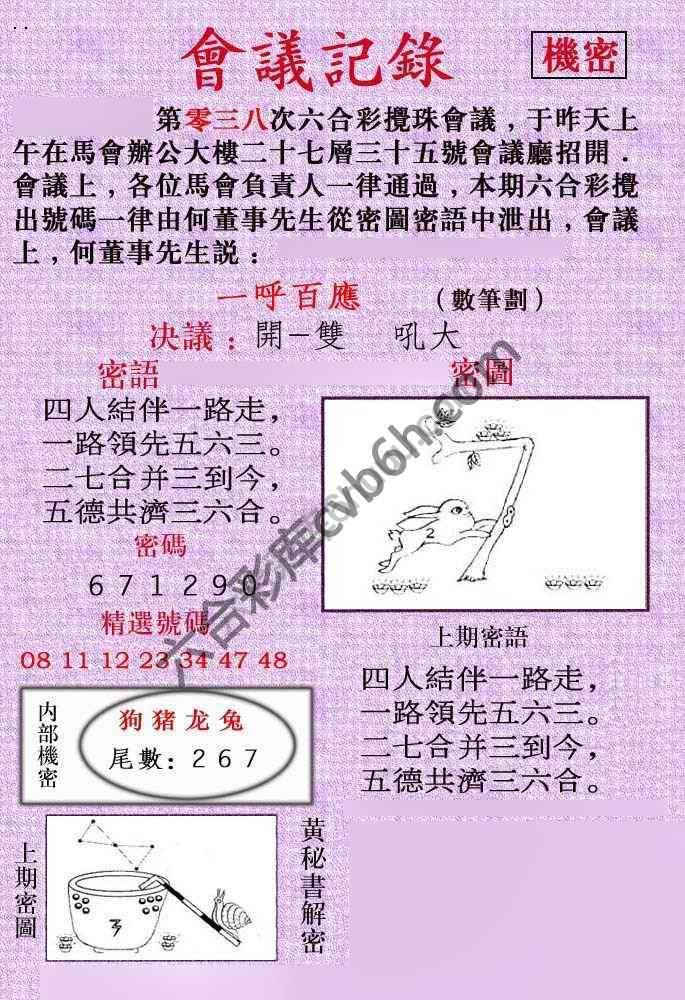 會議記錄
機密
第零三八次六合彩攪珠會議,于昨天上
午在馬會辦公大樓二十七層三十五號會議廳招開.
會議上,各位馬會負責人一律通過,本期六合彩攪
出號碼一律由何董事先生從密圖密語中泄出,會議
上,何董事先生説:
一呼百應 (數筆劃)
决議:開-雙 吼大
密語
密圖
四人結伴一路走,
一路領先五六三。
二七合并三到今,
五德共濟三六合。
2
密碼
671290
精選號碼
08 11 12 23 34 47 48
六合彩库cvb6h.com
内部機密
狗猪龙兔
尾數:267
上期密語
四人結伴一路走,
一路領先五六三。
二七合并三到今,
五德共濟三六合。
上期密圖
黃秘書解密